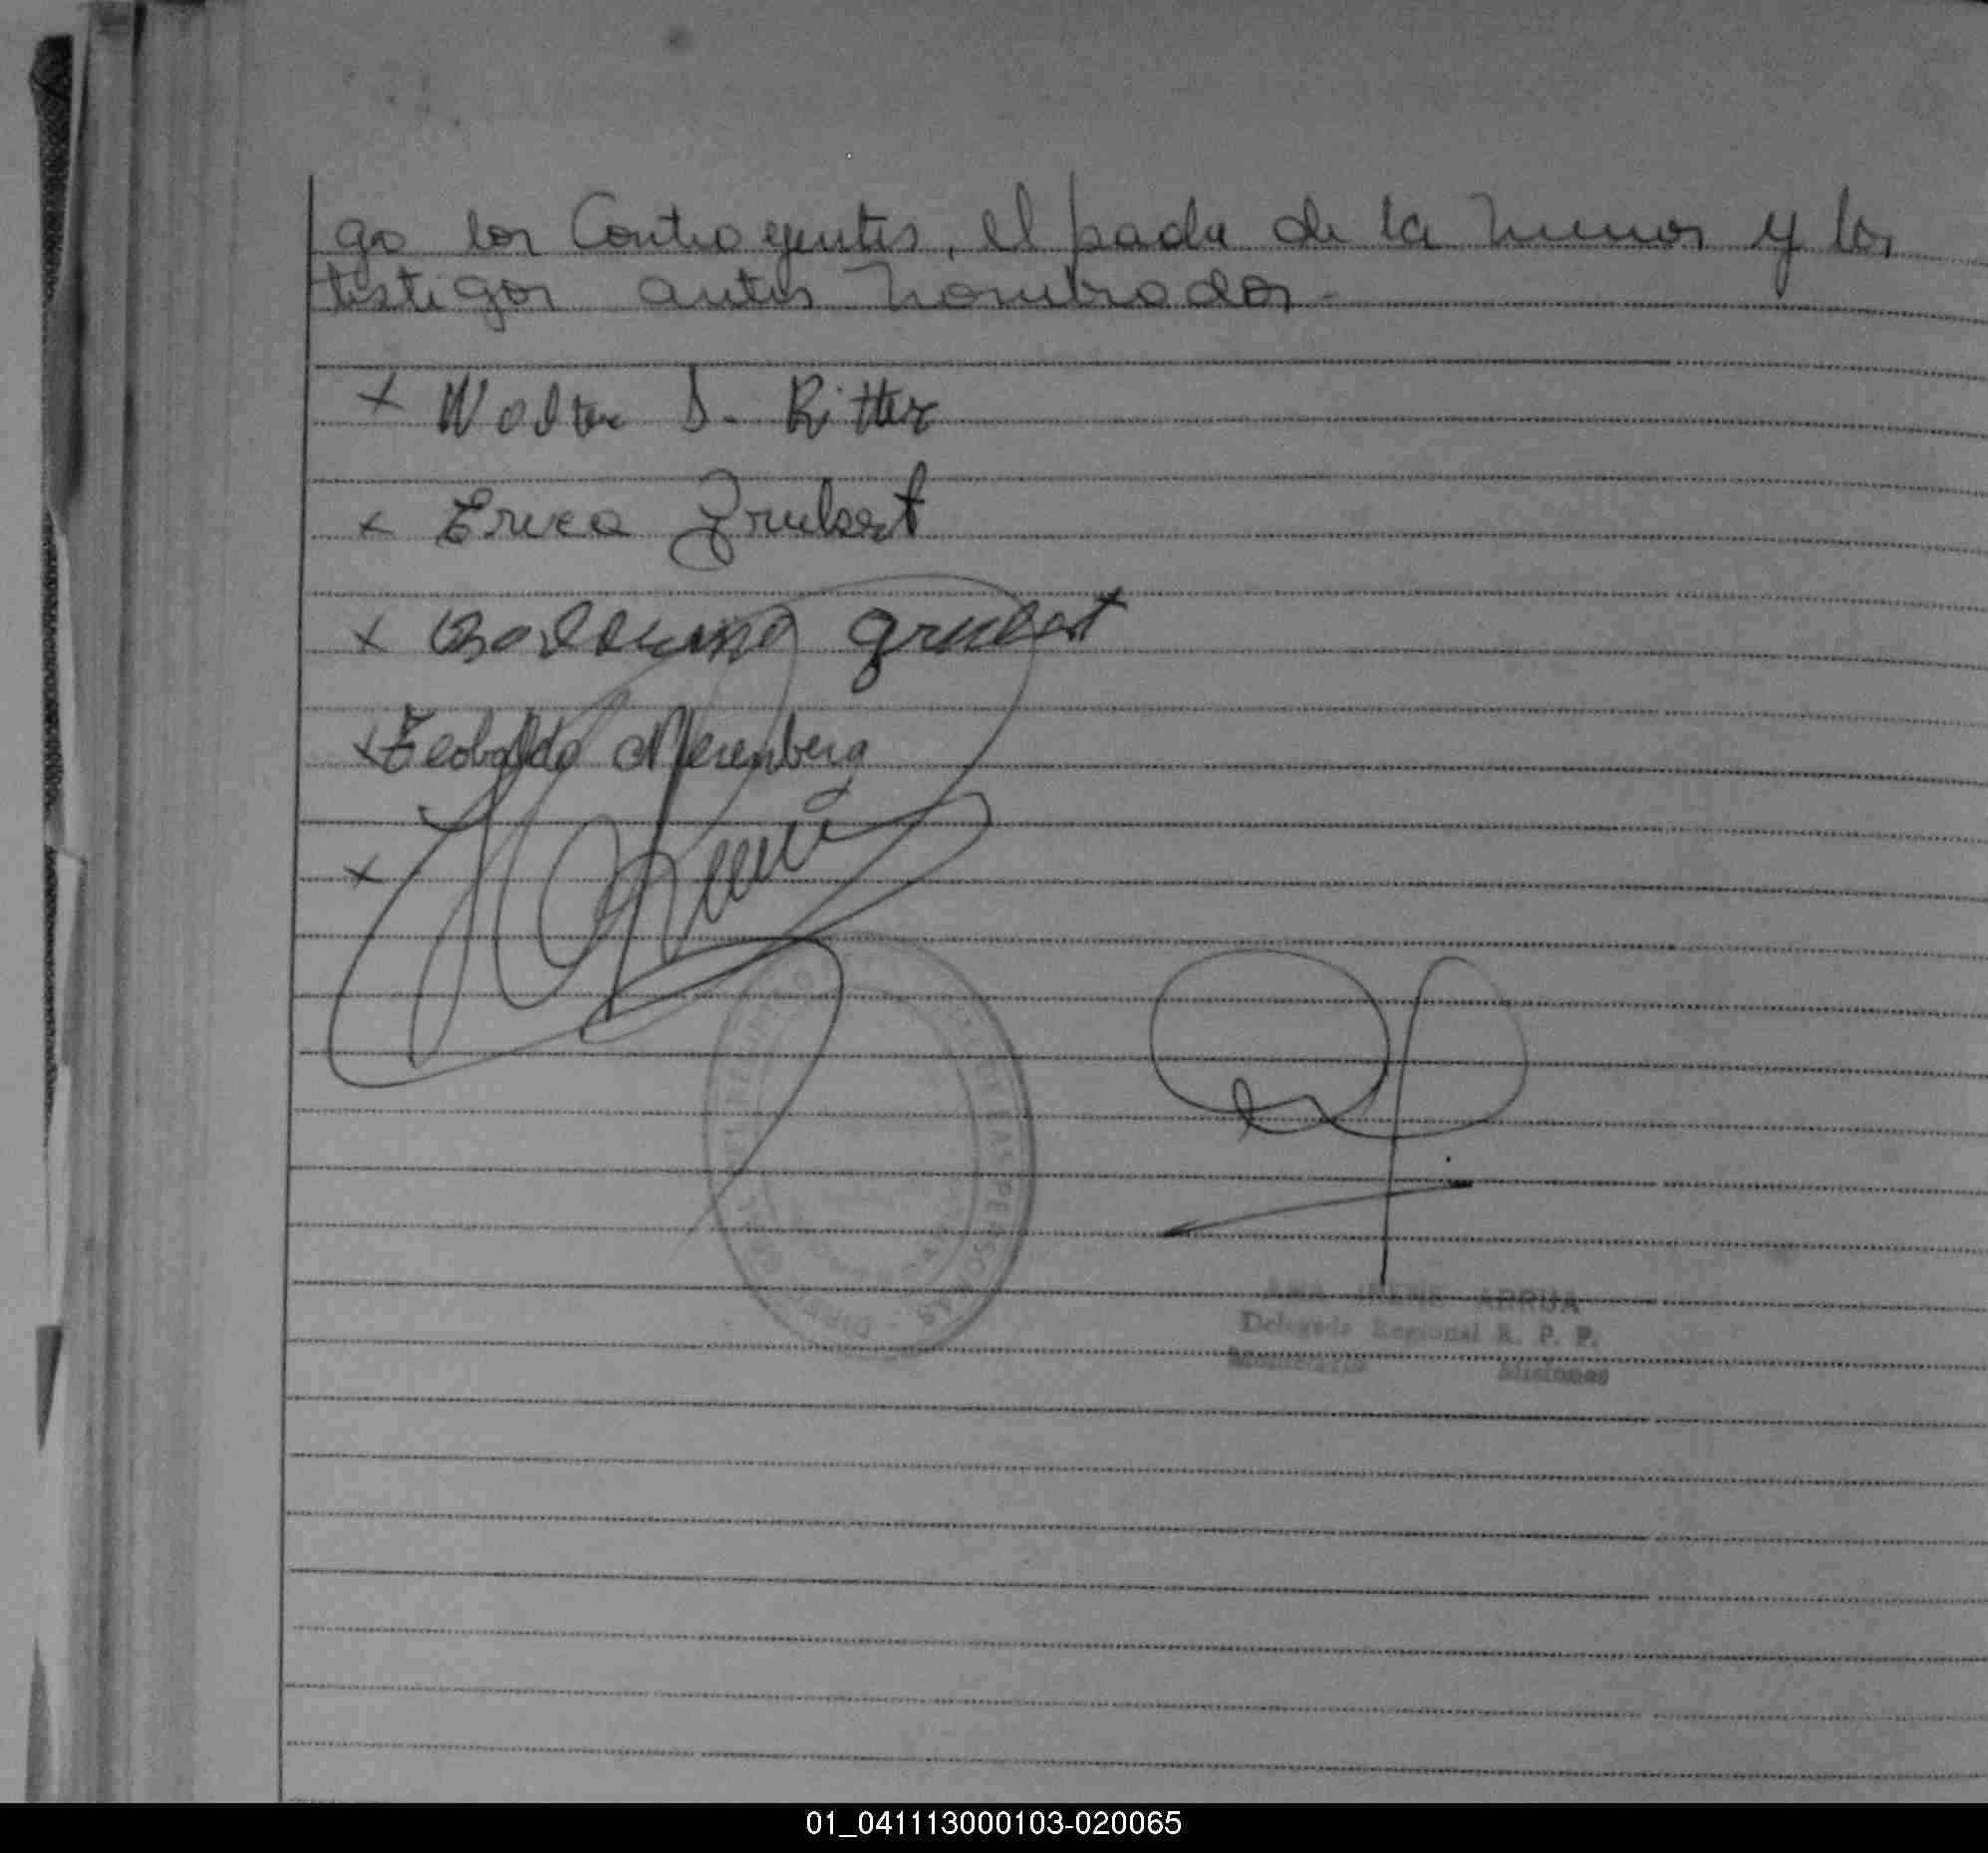 go los Contrayentes, el padre de la menor y los
testigos antes nombrados-
x Walter S. Ritter
x Erica Grubert
x Balduino grubert
x Teobaldo Merenberg
x
ANA IRENE ARRUA
Delegada Regional R. P. P.
Misiones
01_041113000103-020065